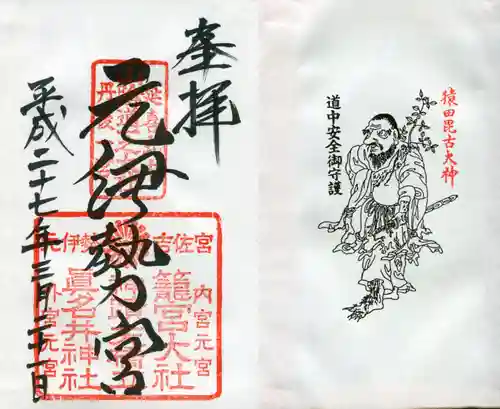 奉拝
元伊勢籠宮
平成二十七年三月二十一日
元伊勢
吉佐宮
籠宮大社
内宮元宮
眞名井神社
外宮元宮
猿田毘古大神
道中安全御守護